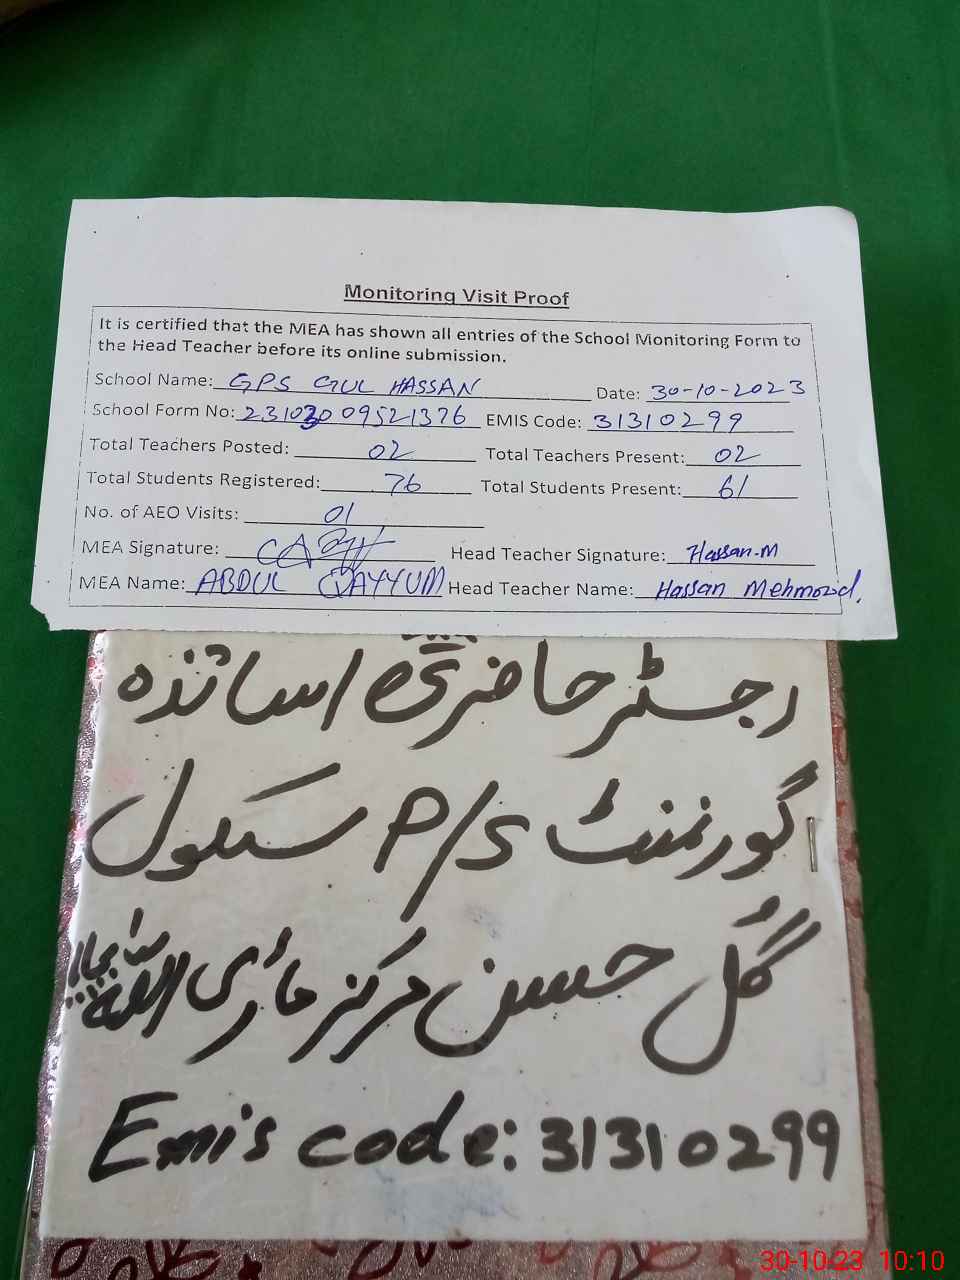 Monitoring Visit Proof
It is certified that the MEA has shown all entries of the School Monitoring Form to
the Head Teacher before its online submission.
School Name: GPS GUL HASSAN Date: 30-10-2023
School Form No: 23103009521376 EMIS Code: 31310299
Total Teachers Posted: 02 Total Teachers Present: 02
Total Students Registered: 76 Total Students Present: 61
No. of AEO Visits: 01
MEA Signature: Head Teacher Signature: Hassan.M
MEA Name: ABDUL QAYYUM Head Teacher Name: Hassan Mehmood.
رجسٹر حاضری اساتذہ
گورنمنٹ P/S سکول
گل حسن مرکز ماڑی اللہ
Emis code: 31310299
30-10-23 10:10